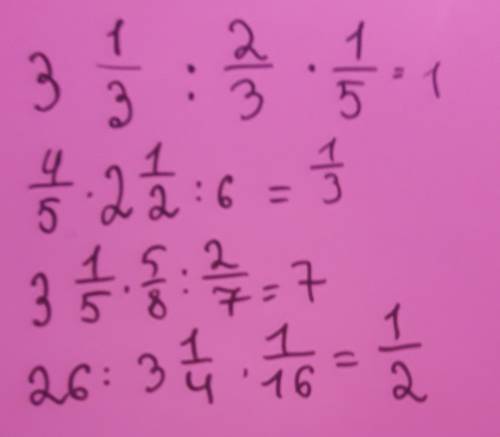 3 1/3 : 2/3 · 1/5 = 1
4/5 · 2 1/2 : 6 = 1/3
3 1/5 · 5/8 : 2/7 = 7
26 : 3 1/4 · 1/16 = 1/2